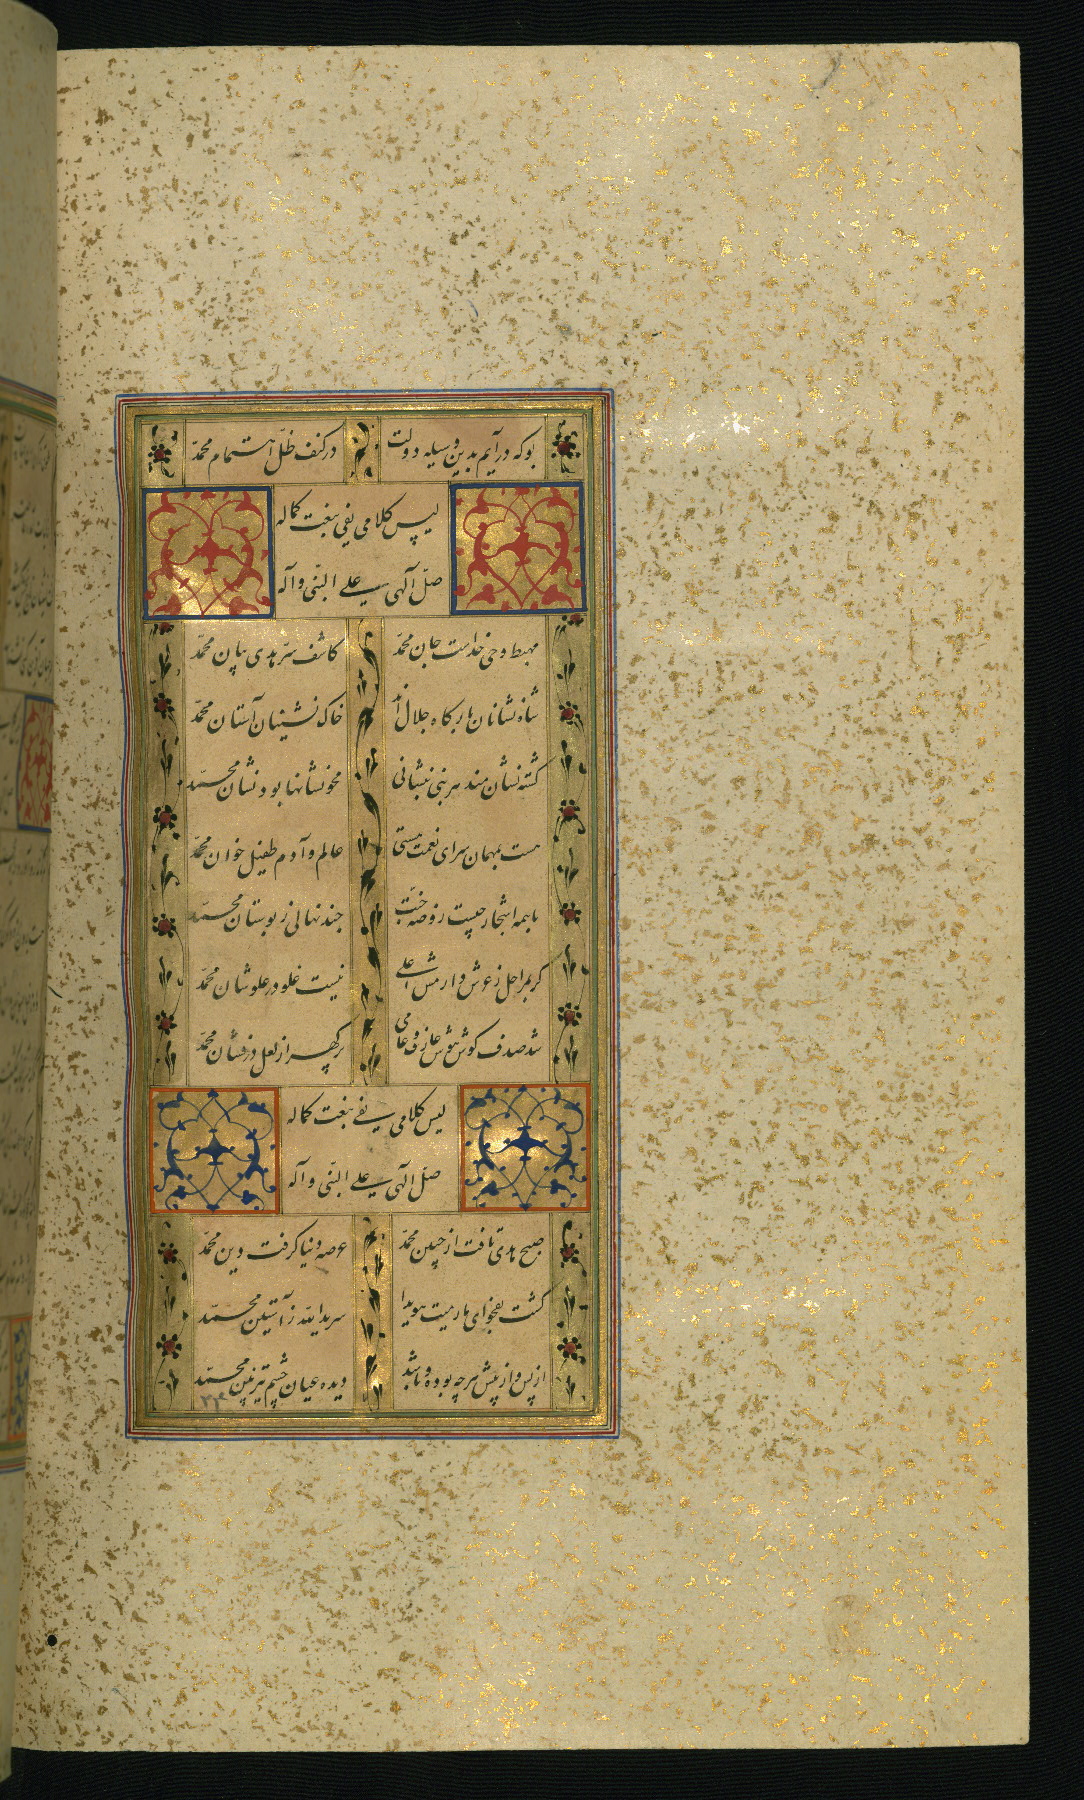 بوکه درآیم بدین وسیله دولت درکنف ظل اهتمام محمد
لیس کلامی یفی بنعت کماله
صل آلهی علی النبی وآله
مهبط وحی خداست جان محمد کاشف سر هدی بیان محمد
شاه نشانان بارکاه جلال‌اند خاک نشینان آستان محمد
کشته نشان‌مند هر نبی بنشانی محو نشانها بود نشان محمد
هست بمهمان سرای نعمت هستی عالم وآدم طفیل خوان محمد
باهمه اشجار چیست روضه جنت چند نهالی ز بوستان محمد
کر بمراحل ز عرش دارمش اعلی نیست غلو در علو شان محمد
شد صدف کوش هوش عارف وعامی پر کهر از لعل درفشان محمد
لیس کلامی یفی بنعت کماله
صل آلهی علی النبی وآله
صبح هدی تافت از جبین محمد عرصه دنیا کرفت دین محمد
کشت بفحوای ما رمیت هویدا سر یدالله ز آستین محمد
از پس واز پیش هرچه بوده وباشد دیده عیان چشم تیزبین محمد